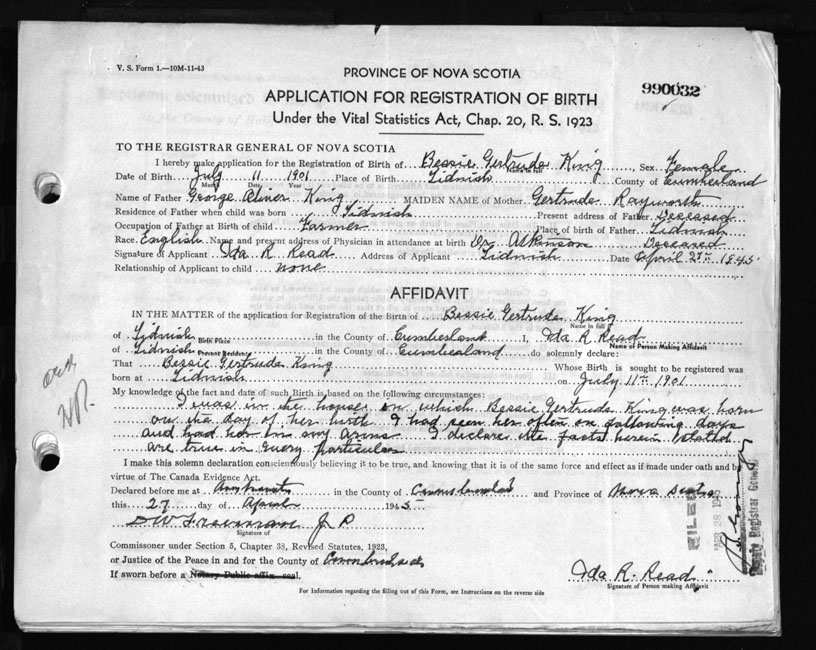 V. S. Form 1.—10M-11-43
PROVINCE OF NOVA SCOTIA
990032
APPLICATION FOR REGISTRATION OF BIRTH
Under the Vital Statistics Act, Chap. 20, R. S. 1923
TO THE REGISTRAR GENERAL OF NOVA SCOTIA
I hereby make application for the Registration of Birth of Bessie Gertrude King, Sex Female
Name in full
Date of Birth July 11 1901 Place of Birth Tidnish County of Cumberland
Month Date Year
Name of Father George Oliver King MAIDEN NAME of Mother Gertrude Rayworth
Residence of Father when child was born Tidnish Present address of Father Deceased
Occupation of Father at Birth of child Farmer Place of birth of Father Tidnish
Race English Name and present address of Physician in attendance at birth Dr. Atkinson Deceased
Signature of Applicant Ida R. Read Address of Applicant Tidnish Date April 27th 1945
Relationship of Applicant to child none
AFFIDAVIT
IN THE MATTER of the application for Registration of the Birth of Bessie Gertrude King
Name in full
of Tidnish in the County of Cumberland I, Ida R. Read
Birth Place Name of Person Making Affidavit
of Tidnish in the County of Cumberland do solemnly declare:
Present Residence
That Bessie Gertrude King Whose Birth is sought to be registered was
born at Tidnish on July 11th 1901
My knowledge of the fact and date of such Birth is based on the following circumstances:
I was in the house in which Bessie Gertrude King was born
on the day of her birth I had seen her often on following days
and had her in my arms I declare the facts herein stated
are true in every particular
I make this solemn declaration conscientiously believing it to be true, and knowing that it is of the same force and effect as if made under oath and by
virtue of The Canada Evidence Act.
Declared before me at Amherst in the County of Cumberland and Province of Nova Scotia
this 27 day of April 1945
D W Freeman J P
Signature of
Commissioner under Section 5, Chapter 38, Revised Statutes, 1923,
or Justice of the Peace in and for the County of Cumberland
If sworn before a Notary Public affix seal.
Ida R. Read
Signature of Person making Affidavit
For Information regarding the filling out of this Form, see Instructions on the reverse side
FILED
Deputy Registrar General